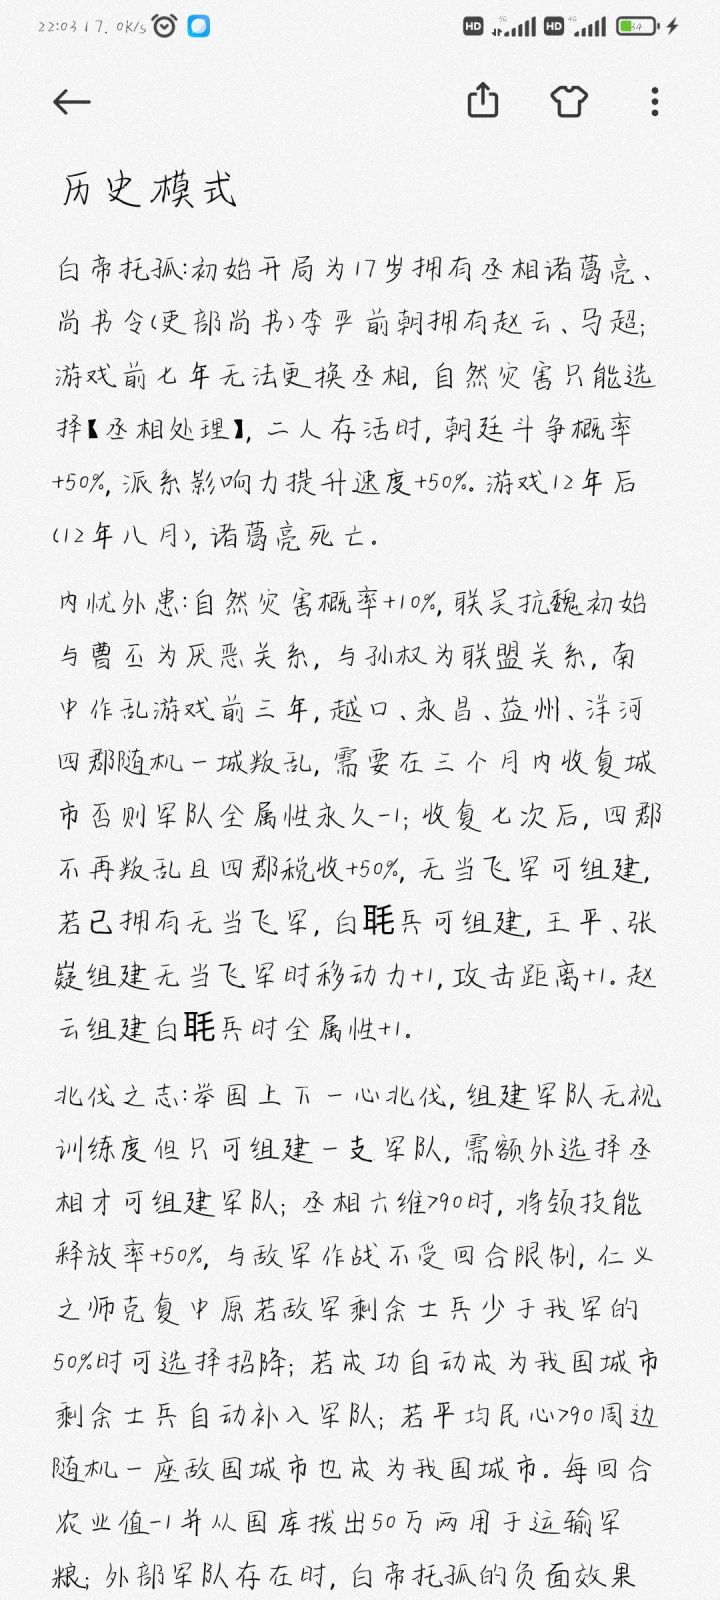 22:03 | 7.0K/s HD 5G HD 4G 34
历史模式
白帝托孤:初始开局为17岁拥有丞相诸葛亮、
尚书令(吏部尚书)李严前朝拥有赵云、马超;
游戏前七年无法更换丞相,自然灾害只能选
择【丞相处理】,二人存活时,朝廷斗争概率
+50%,派系影响力提升速度+50%。游戏12年后
(12年八月),诸葛亮死亡。
内忧外患:自然灾害概率+10%,联吴抗魏初始
与曹丕为厌恶关系,与孙权为联盟关系,南
中作乱游戏前三年,越口、永昌、益州、牂河
四郡随机一城叛乱,需要在三个月内收复城
市否则军队全属性永久-1;收复七次后,四郡
不再叛乱且四郡税收+50%,无当飞军可组建,
若己拥有无当飞军,白毦兵可组建,王平、张
嶷组建无当飞军时移动力+1,攻击距离+1。赵
云组建白毦兵时全属性+1。
北伐之志:举国上下一心北伐,组建军队无视
训练度但只可组建一支军队,需额外选择丞
相才可组建军队;丞相六维>90时,将领技能
释放率+50%,与敌军作战不受回合限制,仁义
之师克复中原若敌军剩余士兵少于我军的
50%时可选择招降;若成功自动成为我国城市
剩余士兵自动补入军队;若平均民心>90周边
随机一座敌国城市也成为我国城市。每回合
农业值-1并从国库拨出50万两用于运输军
粮;外部军队存在时,白帝托孤的负面效果